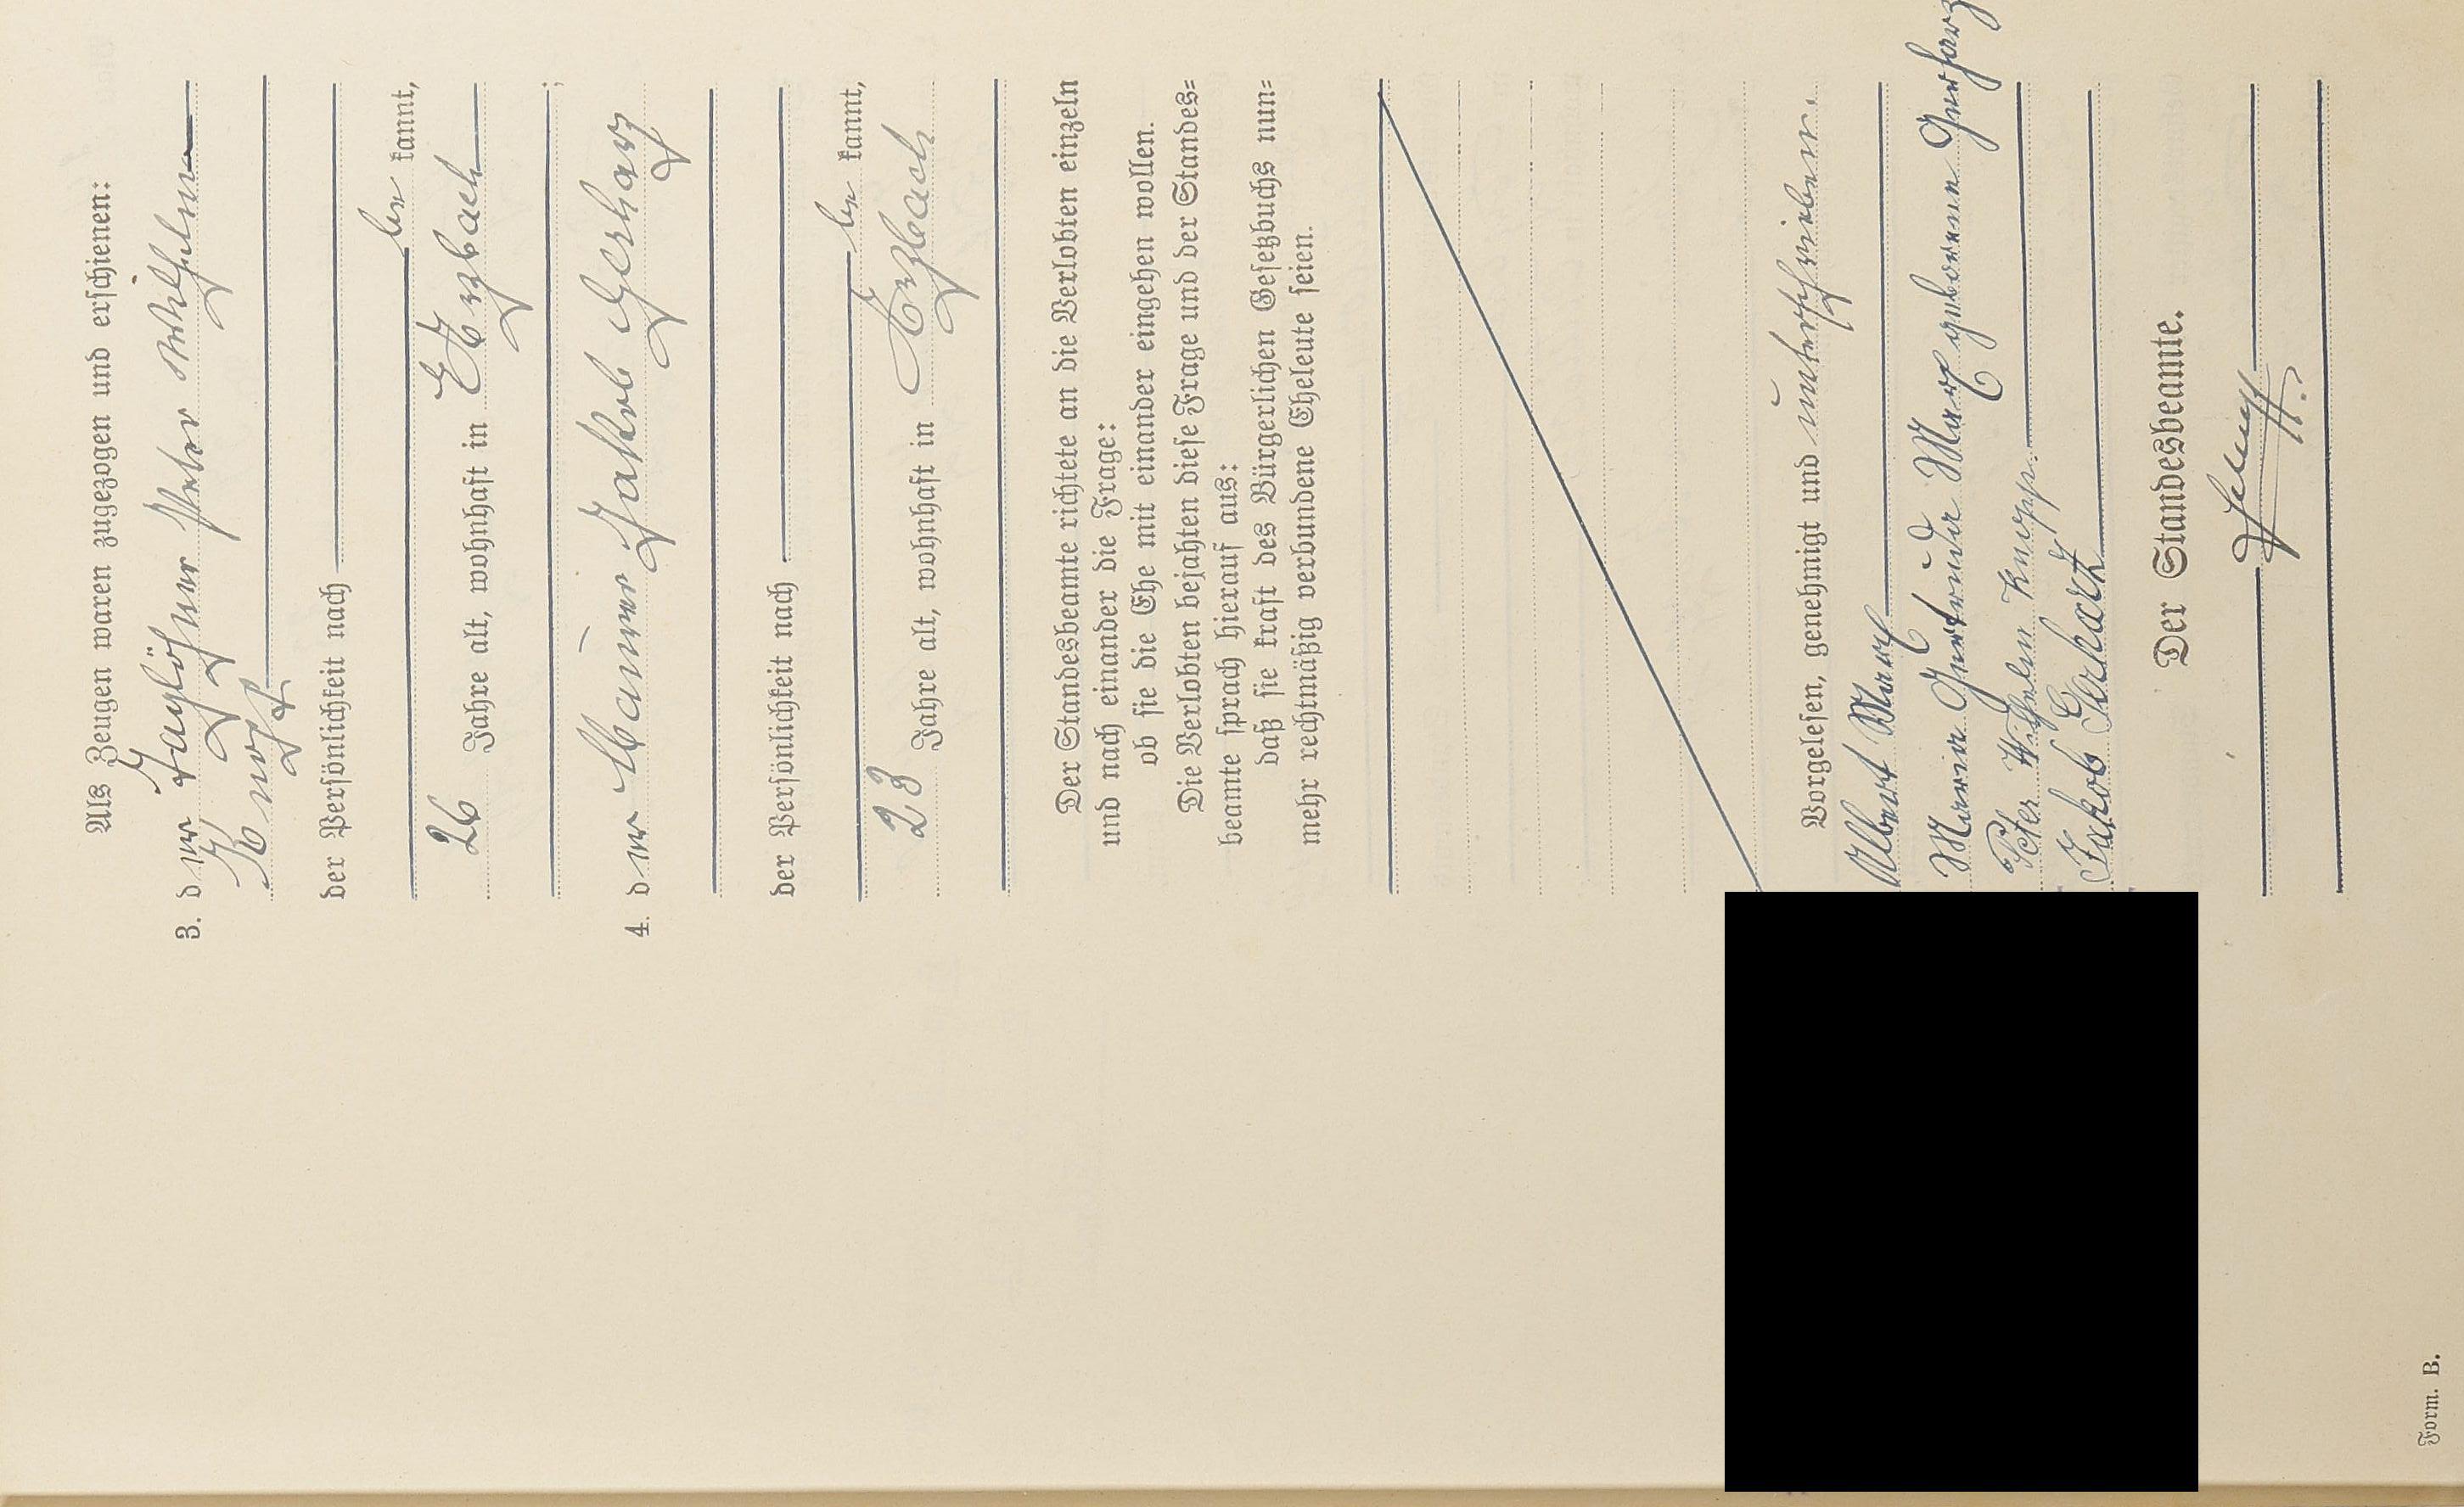 Als Zeugen waren zugezogen und erschienen:
3. der Taglöhner Peter Wilhelm
der Persönlichkeit nach
be kannt,
26 Jahre alt, wohnhaft in Etzbach
;
4. der Maurer Jakob Gerharz
der Persönlichkeit nach
be kannt,
23 Jahre alt, wohnhaft in Etzbach
Der Standesbeamte richtete an die Verlobten einzeln
und nach einander die Frage:
ob sie die Ehe mit einander eingehen wollen.
Die Verlobten bejahten diese Frage und der Standes=
beamte sprach hierauf aus:
daß sie kraft des Bürgerlichen Gesetzbuchs nun=
mehr rechtmäßig verbundene Eheleute seien.
Vorgelesen, genehmigt und unterschrieben.
Albert Marx
Maria Gertrude Marx geborene Gerharz
Peter Wilhelm Knopp.
Jakob Gerhartz
Der Standesbeamte.
Form. B.